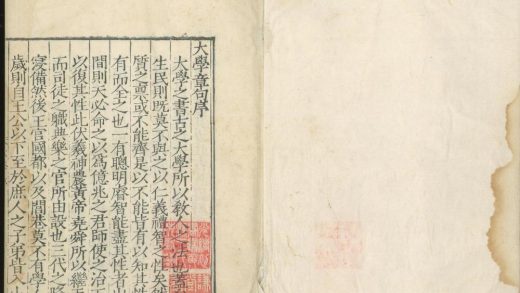 大學章句序
大學之書古之大學所以敎人之法也蓋
生民則既莫不與之以仁義禮智之性矣然
質之稟或不能齊是以不能皆有以知其性
有而全之也一有聰明睿智能盡其性者出
間則天必命之以爲億兆之君師使之治而
以復其性此伏羲神農黃帝堯舜所以繼天
而司徒之職典樂之官所由設也三代之隆
寖備然後王宮國都以及閭巷莫不有學
歲則自王公以下至於庶人之子弟皆入小